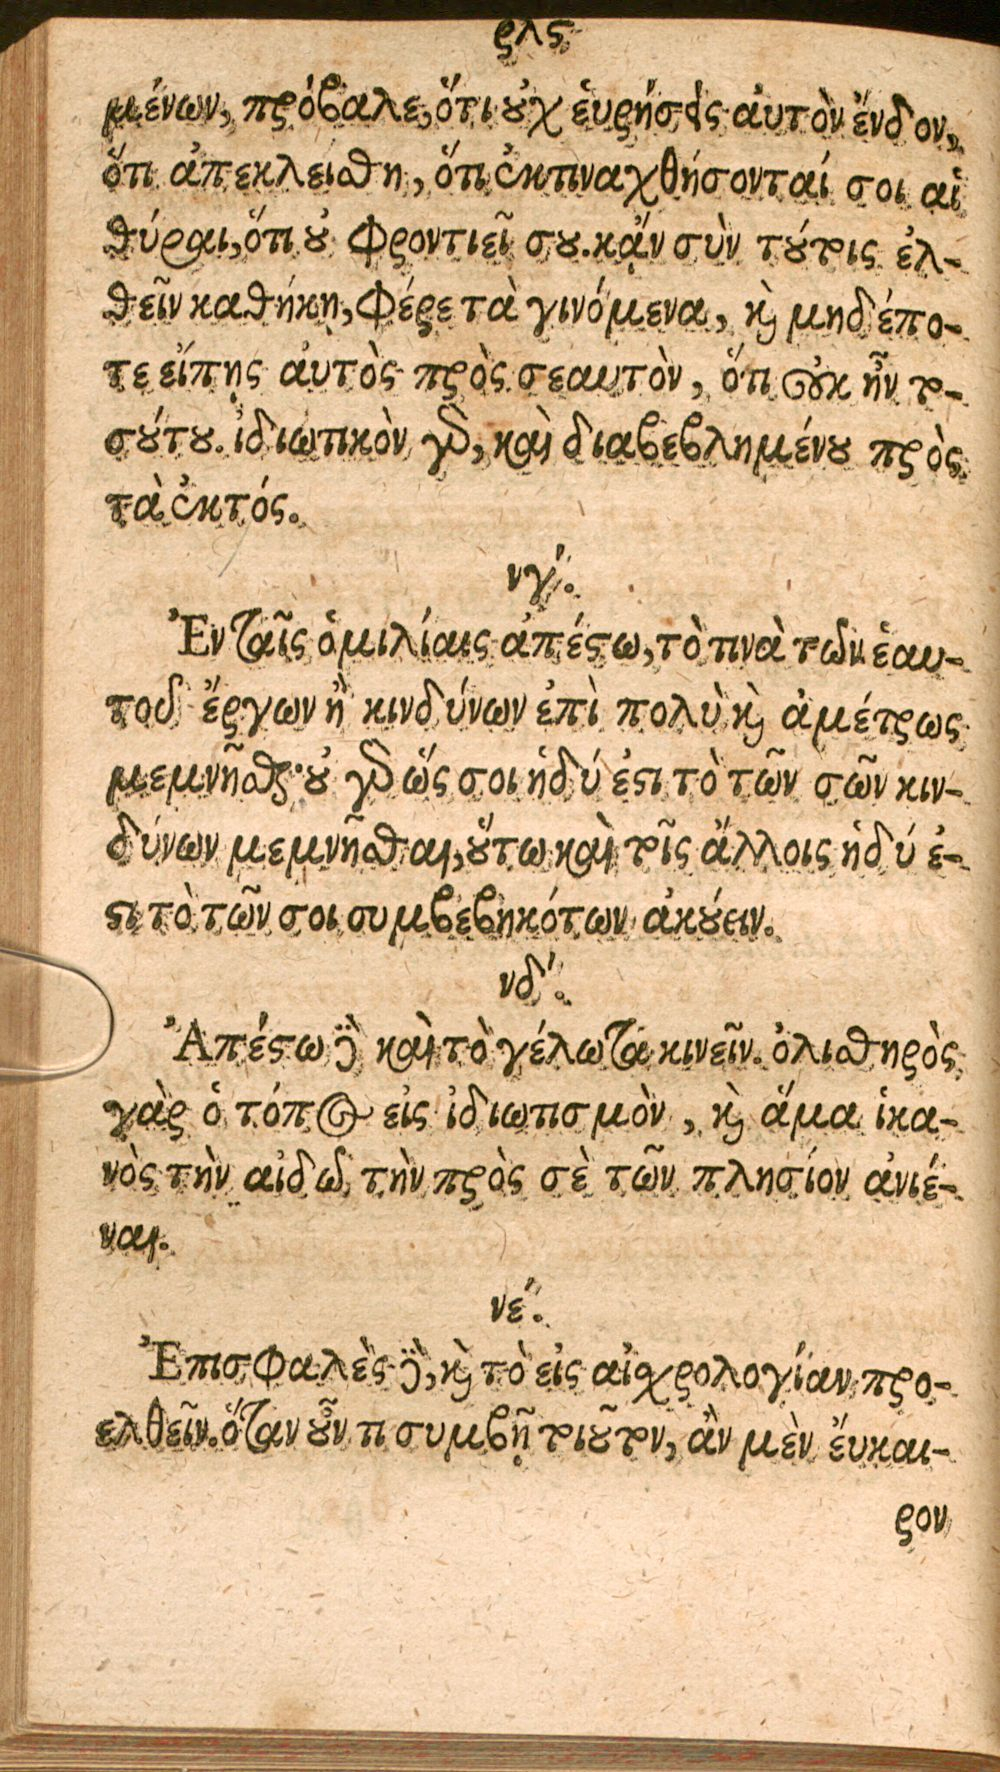 ρλς
μένων, πρόβαλε, ὅτι οὐχ ἑυρήσεις ἀυτὸν ἔνδον,
ὅτι ἀπεκλείσθη, ὅτι ἐκτιναχθήσονταί σοι αἱ
θύραι, ὅτι οὐ φροντιεῖ σου. κᾂν σὺν τούτοις ἐλ-
θεῖν καθήκῃ, φέρε τὰ γινόμενα, καὶ μηδέπο-
τε εἴπῃς ἀυτὸς πρὸς σεαυτὸν, ὅτι οὐκ ἦν το-
σούτου. ἰδιωτικὸν γὰρ, καὶ διαβεβλημένου πρὸς
τὰ ἐκτός.
νγ΄.
Ἐν ταῖς ὁμιλίαις ἀπέστω, τὸ τινὰ τῶν ἑαυ-
τοῦ ἔργων ἢ κινδύνων ἐπὶ πολὺ καὶ ἀμέτρως
μεμνῆσθαι· οὐ γὰρ ὥς σοι ἡδύ ἐστι τὸ τῶν σῶν κιν-
δύνων μεμνῆσθαι, οὕτω καὶ τοῖς ἄλλοις ἡδύ ἐ-
στι τὸ τῶν σοι συμβεβηκότων ἀκούειν.
νδ΄.
Ἀπέστω δὲ καὶ τὸ γέλωτα κινεῖν. ὀλισθηρὸς
γὰρ ὁ τόπος εἰς ἰδιωτισμὸν, καὶ ἅμα ἱκα-
νὸς τὴν αἰδῶ τὴν πρὸς σὲ τῶν πλησίον ἀνιέ-
ναι.
νε΄.
Ἐπισφαλὲς δὲ, καὶ τὸ εἰς αἰσχρολογίαν προ-
ελθεῖν. ὅταν οὖν τι συμβῇ τοιοῦτον, ἂν μὲν ἔυκαι-
ρον